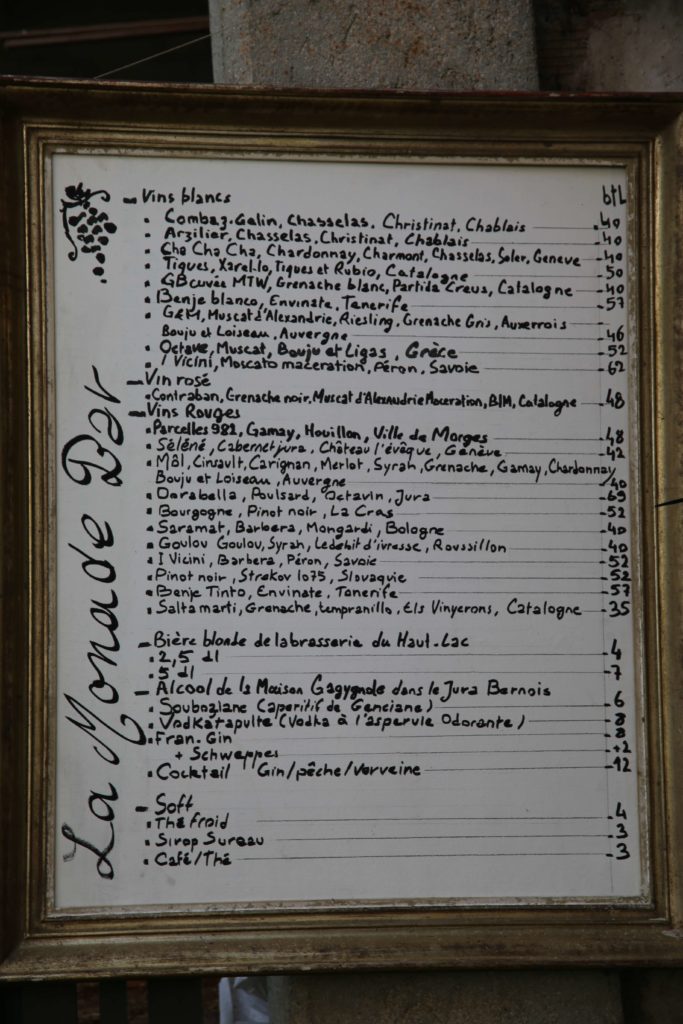 La Monade Bar
btL
- Vins blancs
• Combaz-Gelin, Chasselas, Christinat, Chablais -40
• Arzilier, Chasselas, Christinat, Chablais -40
• Cha Cha Cha, Chardonnay, Charmont, Chasselas, Soler, Geneve -40
• Tiques, Xarel.lo, Tiques et Rubio, Catalogne -50
• GB cuvée MTW, Grenache blanc, Partida Creus, Catalogne -40
• Benje blanco, Envinate, Tenerife -57
• G&M, Muscat d'Alexandrie, Riesling, Grenache Gris, Auxerrois
Bouju et Loiseau, Auvergne -46
• Octave, Muscat, Bouju et Ligas, Grèce -52
• I Vicini, Moscato maceration, Péron, Savoie -62
- Vin rosé
• Contraban, Grenache noir, Muscat d'Alexandrie Maceration, BIM, Catalogne -48
- Vins Rouges
• Parcelles 982, Gamay, Houillon, Ville de Morges -48
• Séléné, Cabernet jura, Château l'évêque, Genève -42
• Môl, Cinsault, Carignan, Merlot, Syrah, Grenache, Gamay, Chardonnay
Bouju et Loiseau, Auvergne -40
• Dorabella, Poulsard, Octavin, Jura -69
• Bourgogne, Pinot noir, La Cras -52
• Saramat, Barbera, Mongardi, Bologne -40
• Goulou Goulou, Syrah, Ledebit d'ivresse, Roussillon -40
• I Vicini, Barbera, Péron, Savoie -52
• Pinot noir, Strekov 1075, Slovaquie -52
• Benje Tinto, Envinate, Tenerife -57
• Salta marti, Grenache, tempranillo, Els Vinyerons, Catalogne -35
- Bière blonde de la brasserie du Haut-Lac
• 2,5 dl -4
• 5 dl -7
- Alcool de la Maison Gagygnole dans le Jura Bernois
• Soubozlane (aperitif de Genciane) -6
• Vodkatapulte (Vodka à l'asperule Odorante) -8
• Fran. Gin -8
+ Schweppes -+2
• Cocktail Gin/pêche/Verveine -12
- Soft
• Thé froid -4
• Sirop Sureau -3
• Café/Thé -3